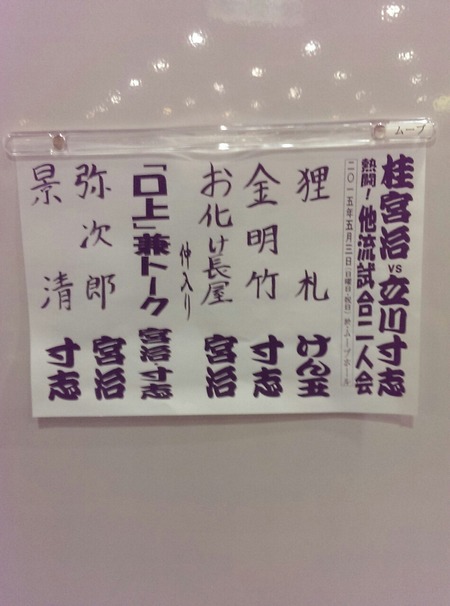 ムーブ
桂宮治 VS 立川寸志
熱闘!他流試合二人会
二〇一五年五月三日(日曜日・祝日)於・ムーブホール
狸札 けん玉
金明竹 寸志
お化け長屋 宮治
仲入り
「口上」兼トーク 宮治 寸志
弥次郎 宮治
景清 寸志